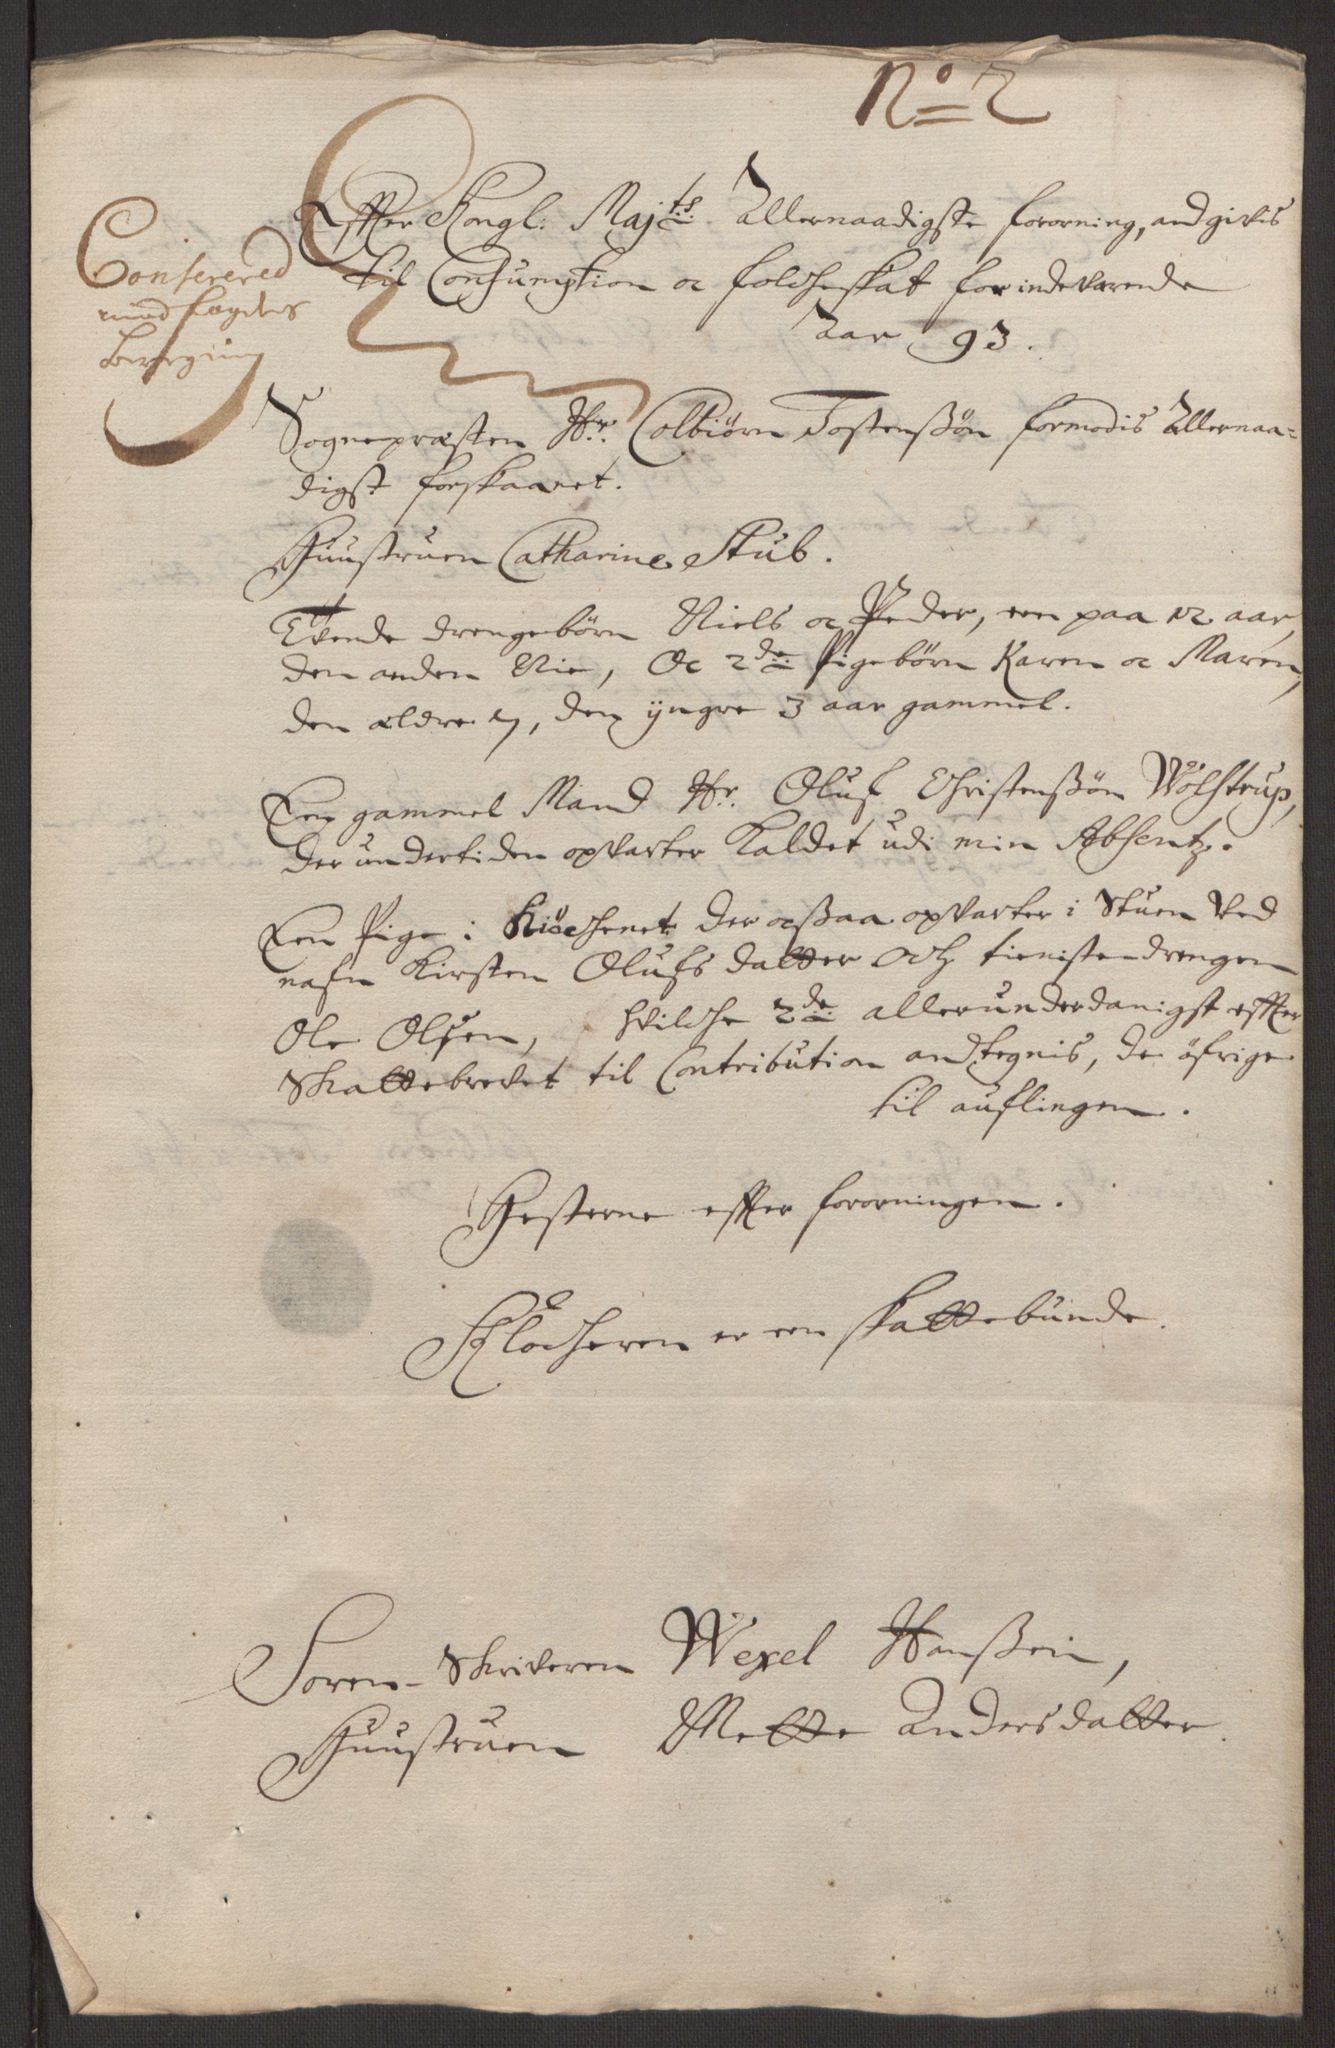 No 2
Effter Kongl: Majts Allernaadigste forording, andgifvis
til Consumption oc folcheskat for indeværende
Aar 93.
Conferered
med fogdens
Sognepræsten Hr. Colbiörn Tostenßön formodis Allernaa-
digst forskaanet.
Huustruen Catharine Stub.
Tvende drengebörn Niels oc Peder, een paa 12 aar,
den anden Nie, Oc 2de Pigebörn Karen oc Maren,
den ældre 7, den yngre 3 aar gammel.
Een gammel Mand Hr. Oluf Christenßön Wölstrup,
der undertiden opvarter Kaldet udi min Absentz.
Een Pige i Kiöchenet der ocßaa opvarter i Stuen ved
nafn Kirsten Olufsdatter Och tienistedrengen
Ole Olsen, hvilche 2de allerunderdanigst effter
Skattebrevet til Contribution andtegnis, de öfrige
til auflingen.
Hesterne effter forordningen.
Klocheren er een skattebunde.
Soren-Skriveren Wexel Hanßen,
Huustruen Mette Andersdatter